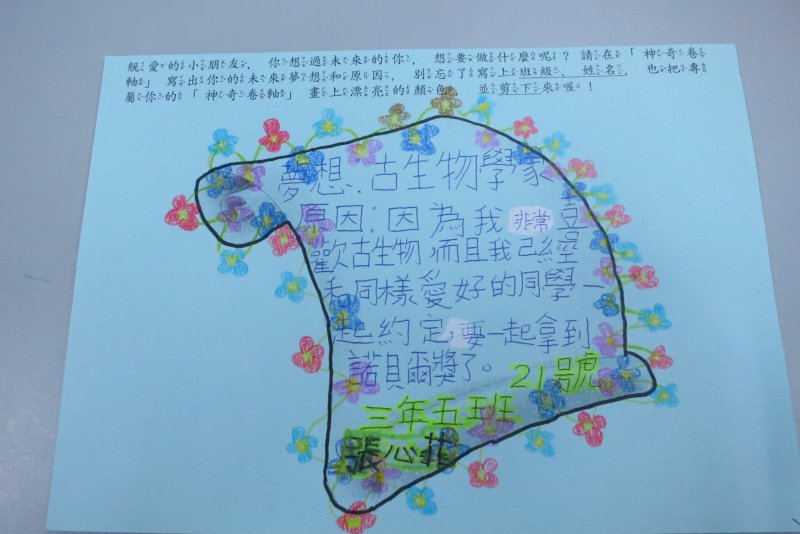 親愛的小朋友, 你想過未來的你, 想要做什麼呢? 請在「神奇卷
軸」寫出你的未來夢想和原因, 別忘了寫上班級、姓名, 也把專
屬你的「神奇卷軸」畫上漂亮的顏色, 並剪下來喔!
夢想:古生物學家
原因:因為我非常喜
歡古生物,而且我已經
和同樣愛好的同學一
起約定,要一起拿到
諾貝爾獎了。
21號
三年五班
張心菲